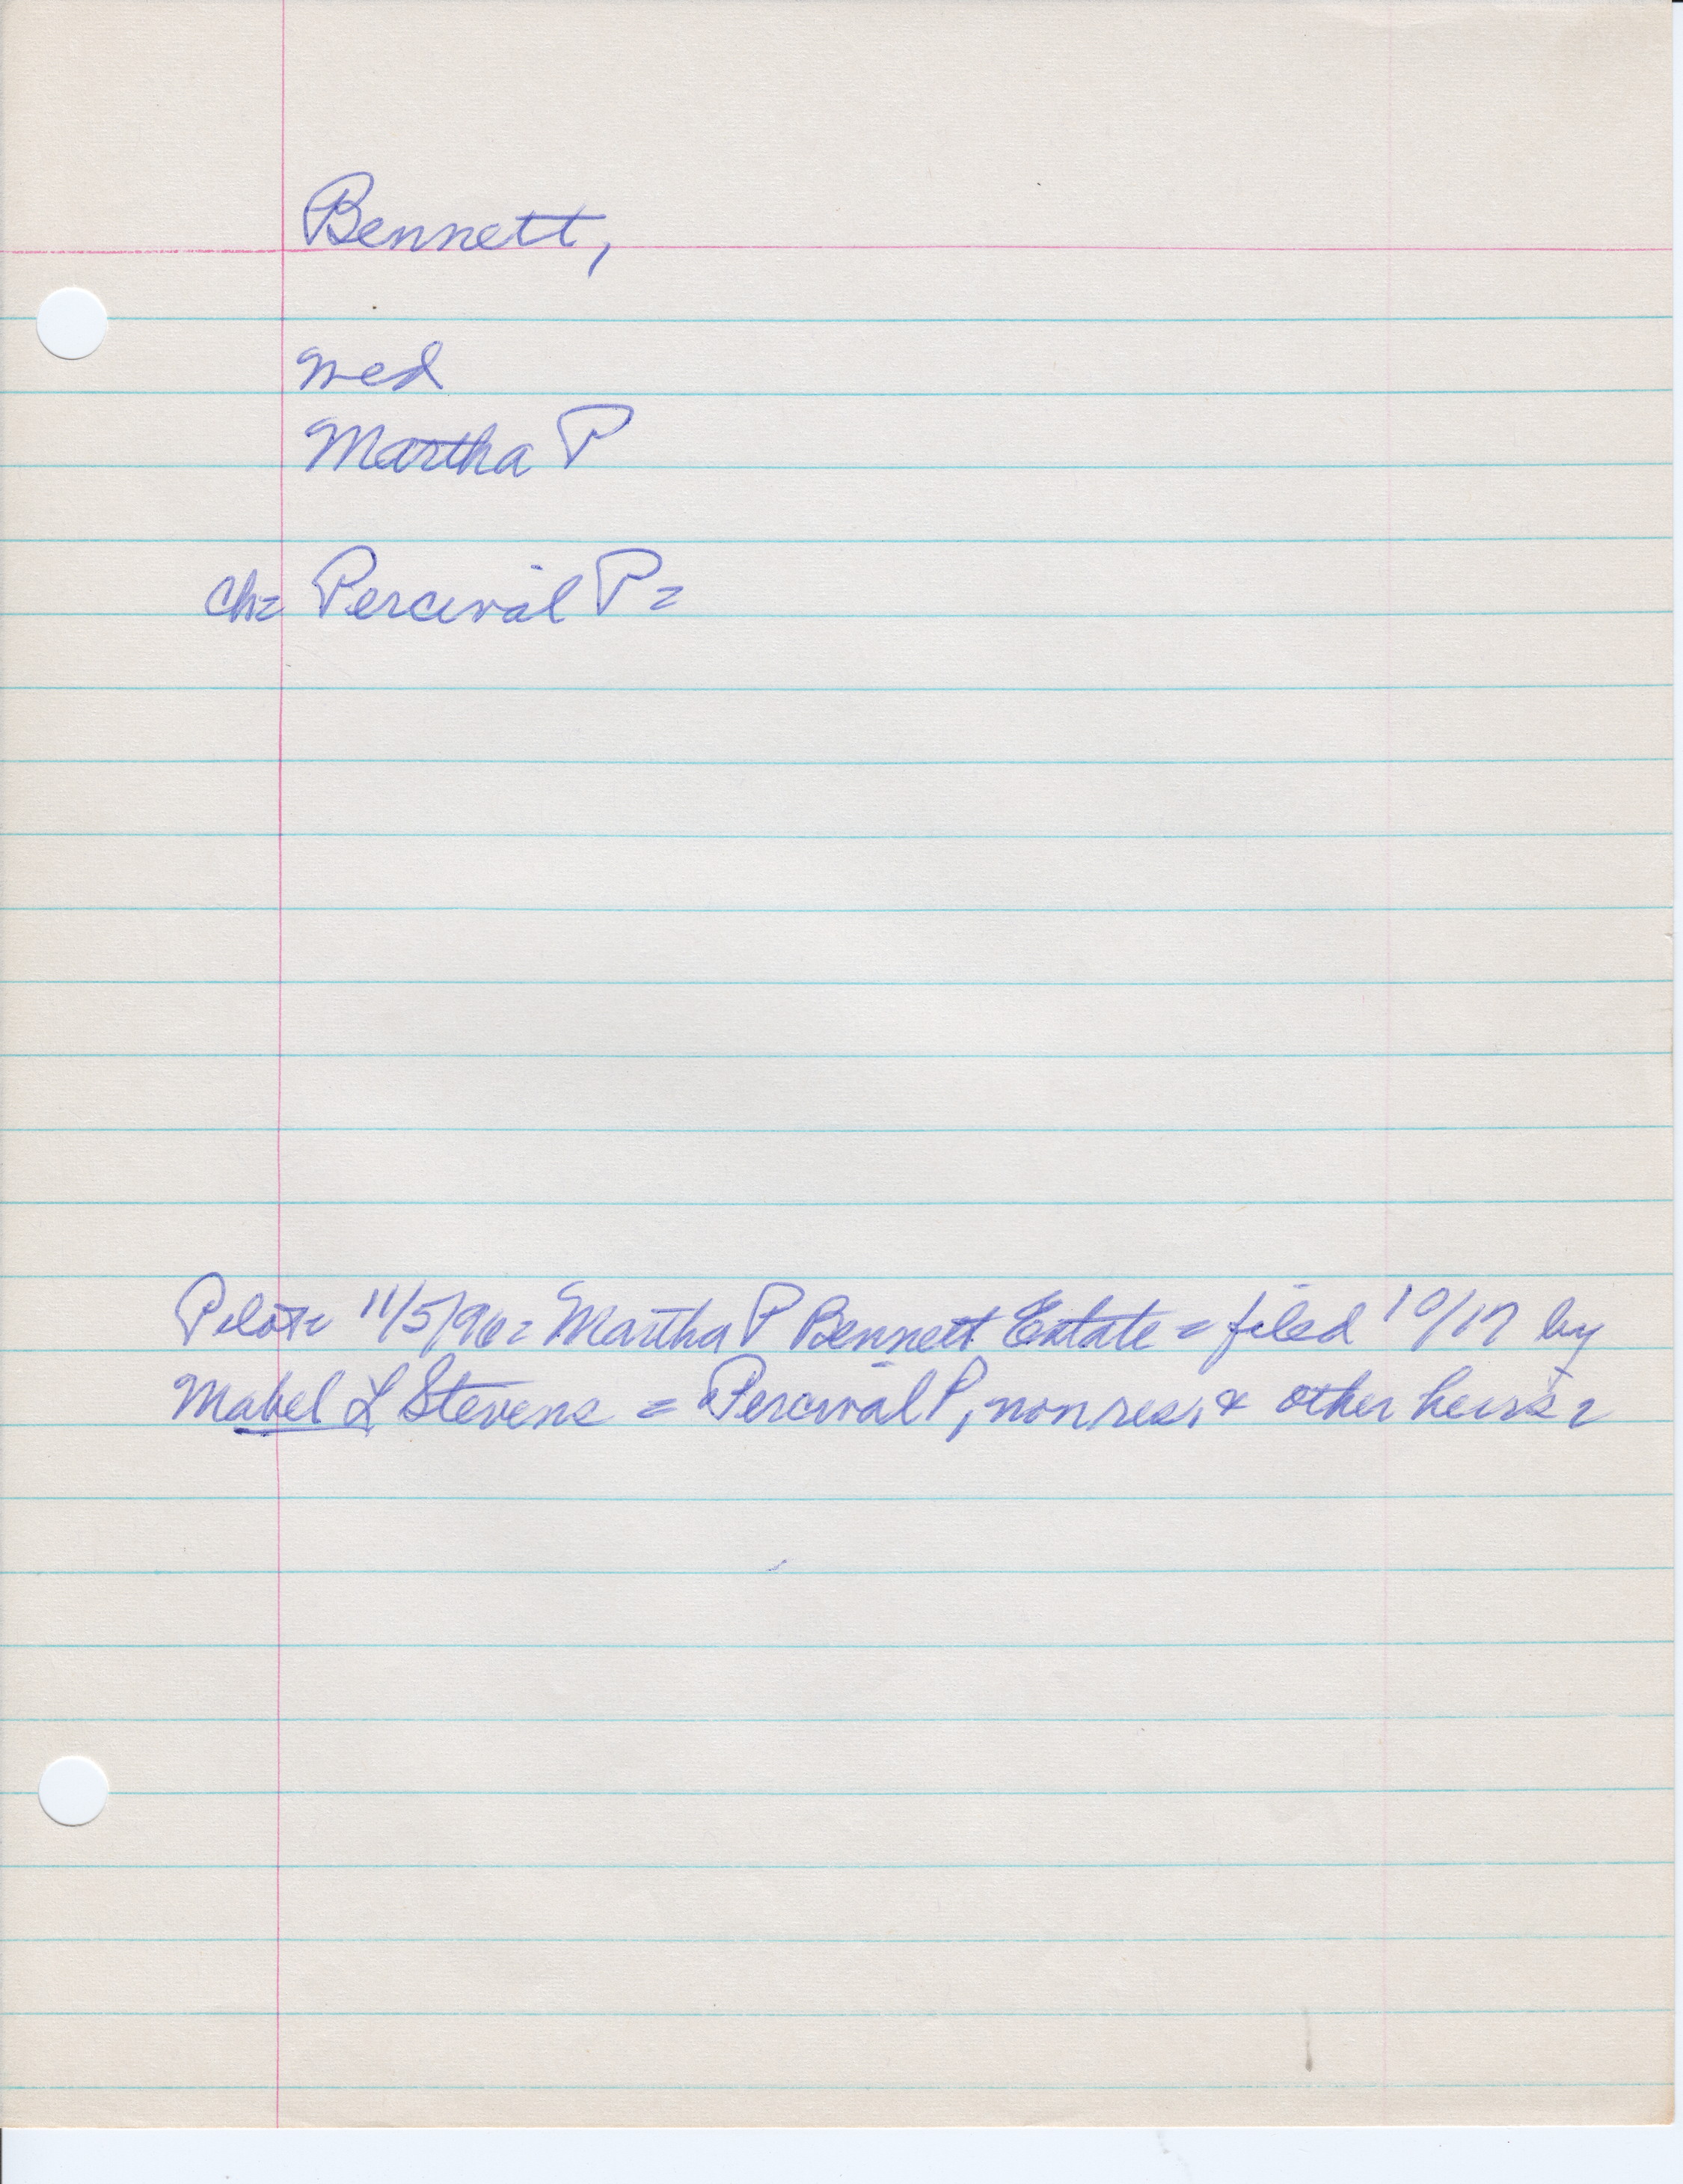 Bennett,
med
Martha P
ch= Percival P=
Pilot= 11/5/96= Martha P Bennett Estate = filed 10/17 by
Mabel L Stevens = Percival P, nonres, & other heirs =